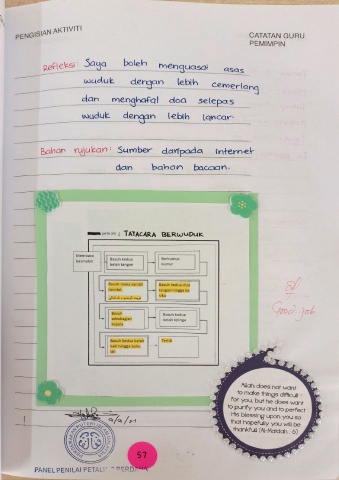 PENGISIAN AKTIVITI
CATATAN GURU
PEMIMPIN
Refleksi: Saya boleh menguasai asas
wuduk dengan lebih cemerlang
dan menghafal doa selepas
wuduk dengan lebih lancar.
Bahan rujukan: Sumber daripada internet
dan bahan bacaan.
TATACARA BERWUDUK
Membaca
basmalah
Basuh kedua
belah tangan
Berkumur
Basuh muka sambil
berniat
Basuh kedua
tangan hingga ke
siku
Basuh
sebahagian
kepala
Basuh kedua
belah telinga
Basuh kedua belah
kaki hingga buku
lali
Tertib
Good job
Allah does not want
to make things difficult
for you, but he does want
to purify you and to perfect
His blessing upon you so
that hopefully you will be
thankful! (Al-Maidah : 6)
57
PANEL PENILAI PETALING PERDANA